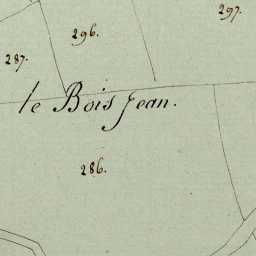 297.
296.
287.
le Bois Jean.
286.